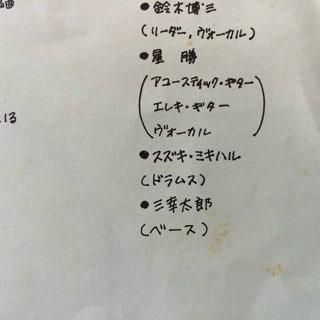 曲
13
●鈴木博三
(リーダー,ヴォーカル)
●星 勝
(アコースティック・ギター
エレキ・ギター
ヴォーカル)
●スズキ・ミキハル
(ドラムス)
●三幸太郎
(ベース)